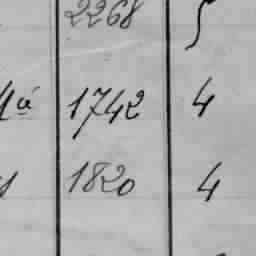 2268 5
1742 4
1820 4